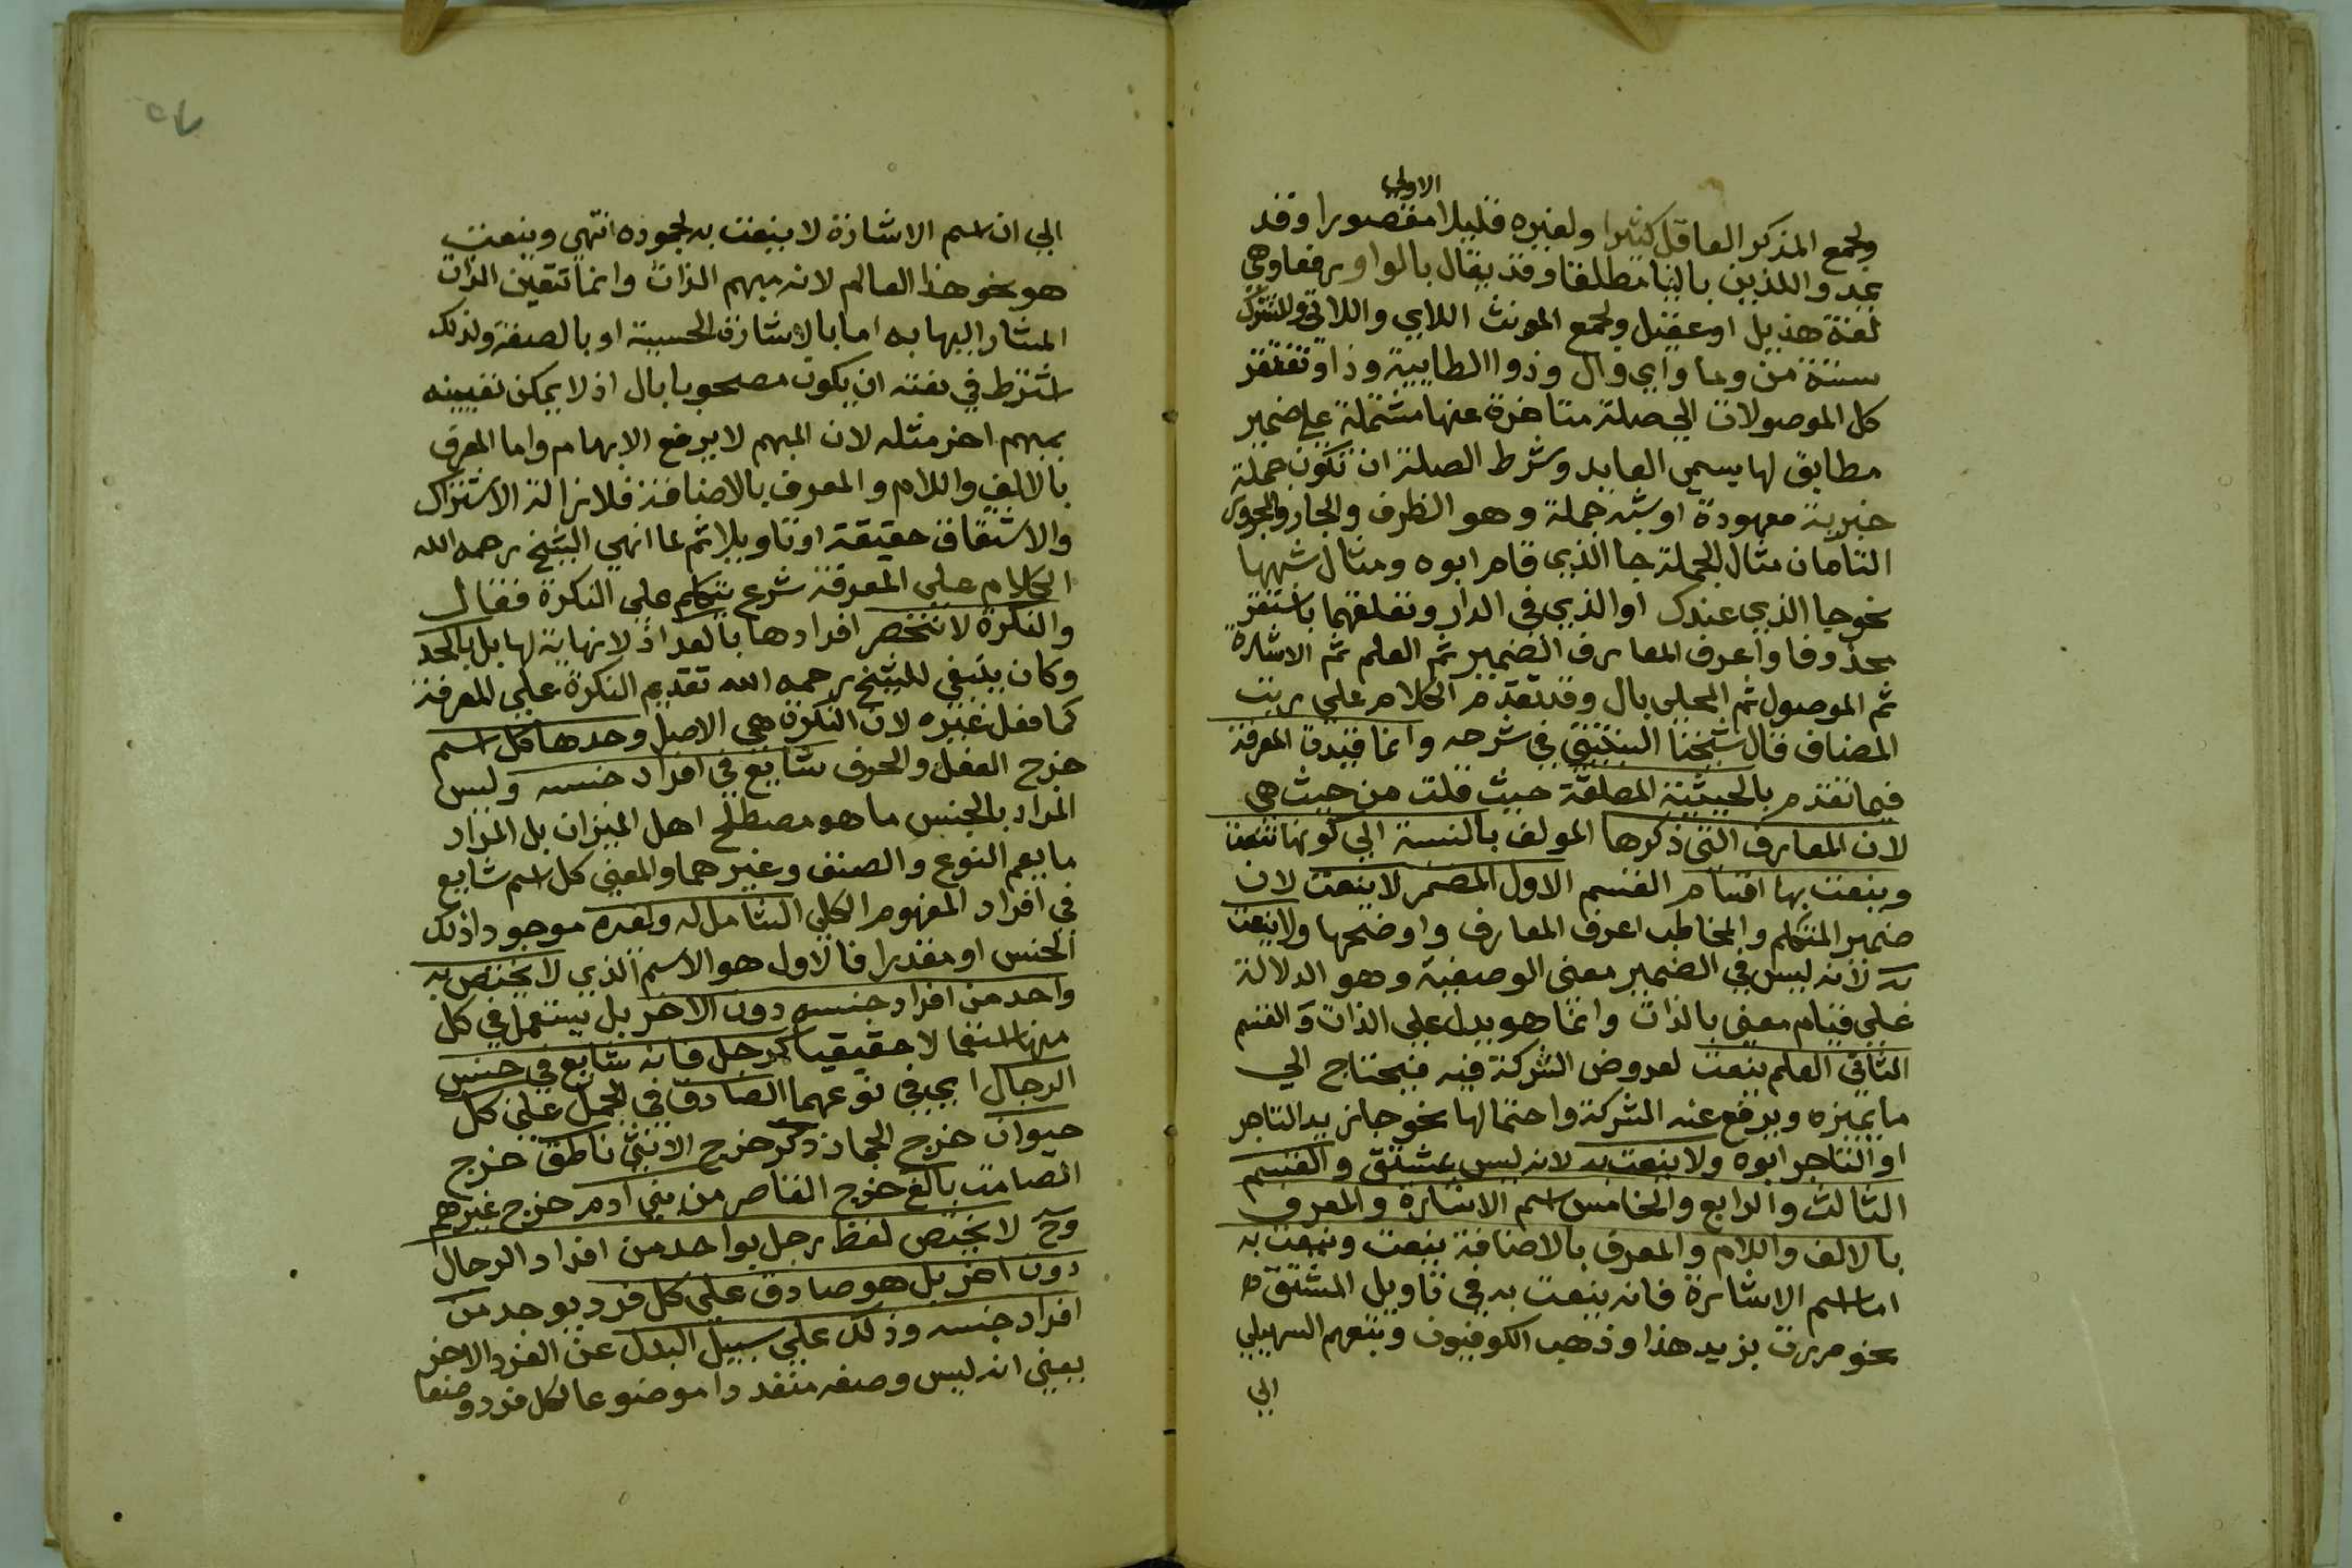 الاولى
ولجمع المذكر العاقل كثيرا ولغيره قليلا مقصورا وقد
يمد واللذين باليا مطلقا وقد يقال بالواو رفعا وهي
لغة هذيل او عقيل ولجمع المونث اللاي واللاتي وللمشترك
ستة من وما واي وال وذوا الطايية وذا وتفتقر
كل الموصولات الي صلة متاخرة عنها مشتملة علي ضمير
مطابق لها يسمي العايد وشرط الصلة ان تكون جملة
خبرية معهودة او شبه جملة وهو الظرف والجار والمجرور
التامان مثال الجملة جا الذي قام ابوه ومثال شبهها
نحو جا الذي عندك او الذي في الدار وتعلقهما باستقر
محذوفا واعرف المعارف الضمير ثم العلم ثم الاشارة
ثم الموصول ثم المحلي بال وقد تقدم الكلام علي رتبت
المضاف قال شيخنا في شرحه وانما قيدت المعرفة
فيما تقدم بالحيثية المطلقة حيث قلت من حيث هي
لان المعارف التي ذكرها المولف بالنسبة الي كونها تنعت
وينعت بها اقسام القسم الاول المضمر لا ينعت لان
ضمير المتكلم والمخاطب اعرف المعارف واوضحها ولا ينعت
به لانه ليس في الضمير معنى الوصفية وهو الدلالة
علي قيام معني بالذات وانما هو يدل علي الذات والقسم
الثاني العلم ينعت لعروض الشركة فيه فيحتاج الي
ما يميزه ويرفع عنه الشركة واحتمالها نحو جا زيد التاجر
او التاجر ابوه ولا ينعت به لانه ليس بمشتق والقسم
الثالث والرابع والخامس اسم الاشارة والمعرف
بالالف واللام والمعرف بالاضافة ينعت وينعت به
اما اسم الاشارة فانه ينعت به في تاويل المشتق
نحو مررت بزيد هذا وذهب الكوفيون وتبعهم السهيلي
الي
الي ان اسم الاشارة لا ينعت به لجموده انتهي وينعت
هو نحو هذا العالم لانه مبهم الذات وانما تتعين الذات
المشار اليها به اما بالاشارة الحسية او بالصفة ولذلك
اشترط في نعته ان يكون مصحوبا بال اذ لا يمكن تعيينه
بمبهم اخر مثله لان المبهم لا يرفع الابهام واما المعرف
بالالف واللام والمعرف بالاضافة فلازالة الاشتراك
والاشتقاق حقيقة او تاويلا ثم لما انهي الشيخ رحمه الله
الكلام علي المعرفة شرع يتكلم علي النكرة فقال
والنكرة لا تنحصر افرادها بالعد اذ لا نهاية لها بل بالحد
وكان ينبغي للشيخ رحمه الله تقديم النكرة علي المعرفة
كما فعل غيره لان النكرة هي الاصل وحدها كل اسم
خرج الفعل والحرف شايع في افراد جنسه وليس
المراد بالجنس ما هو مصطلح اهل الميزان بل المراد
ما يعم النوع والصنف وغيرهما والمعني كل اسم شايع
في افراد المفهوم الكلي الشامل له ولغيره موجود اذلك
الجنس او مقدرا فالاول هو الاسم الذي لا يختص به
واحد من افراد جنسه دون الاخر بل يستعمل في كل
منها استعمالا حقيقيا كرجل فانه شايع في جنس
الرجال اي في نوعهما الصادق في الحمل علي كل
حيوان خرج الجماد ذكر خرج الانثي ناطق خرج
الصامت بالغ خرج القاصر من بني ادم خرج غيرهم
وح لا يختص لفظ رجل بواحد من افراد الرجال
دون اخر بل هو صادق علي كل فرد يوجد من
افراد جنسه وذلك علي سبيل البدل عن الفرد الاخر
بمعني انه ليس وصفه متعددا موضوعا لكل فرد وضعا